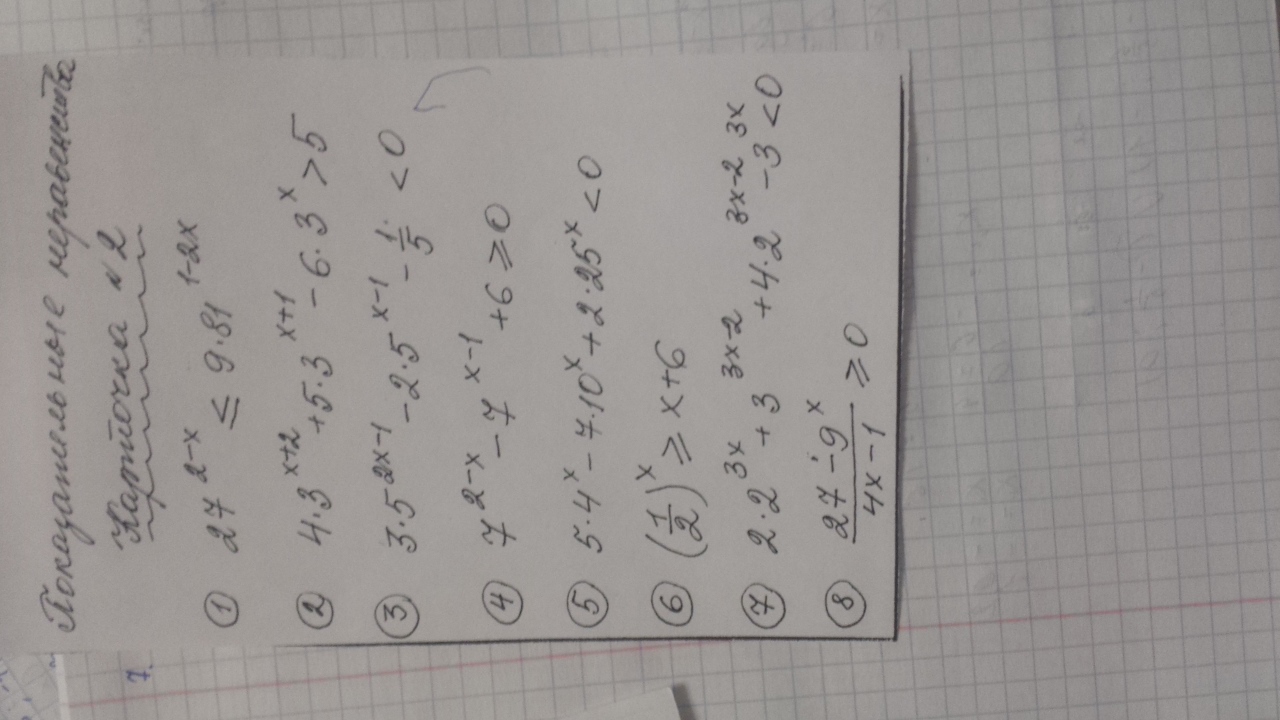 Показательные неравенства
Карточка №2
① 27^(2-x) ≤ 9·81^(1-2x)
② 4·3^(x+2) + 5·3^(x+1) - 6·3^x > 5
③ 3·5^(2x-1) - 2·5^(x-1) - 1/5 < 0
④ 7^(2-x) - 7^(x-1) + 6 ≥ 0
⑤ 5·4^x - 7·10^x + 2·25^x < 0
⑥ (1/2)^x ≥ x+6
⑦ 2·2^(3x) + 3^(3x-2) + 4·2^(3x-2) - 3^(3x) < 0
⑧ (27 - 9^x)/(4x-1) ≥ 0
7.